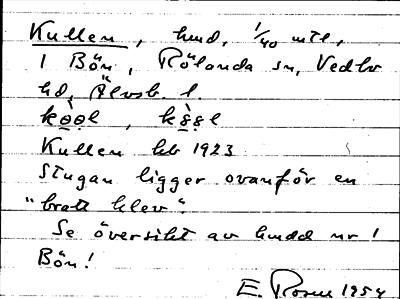 Kullen, hmd, 1/40 mtl,
1 Bön, Rölanda sn, Vedbo
hd, Älvsb. l.
Kullen kb 1923
Stugan ligger ovanför en
"bratt klev".
Se översikt av hmdd nr 1
Bön!
E. Rosen 1954